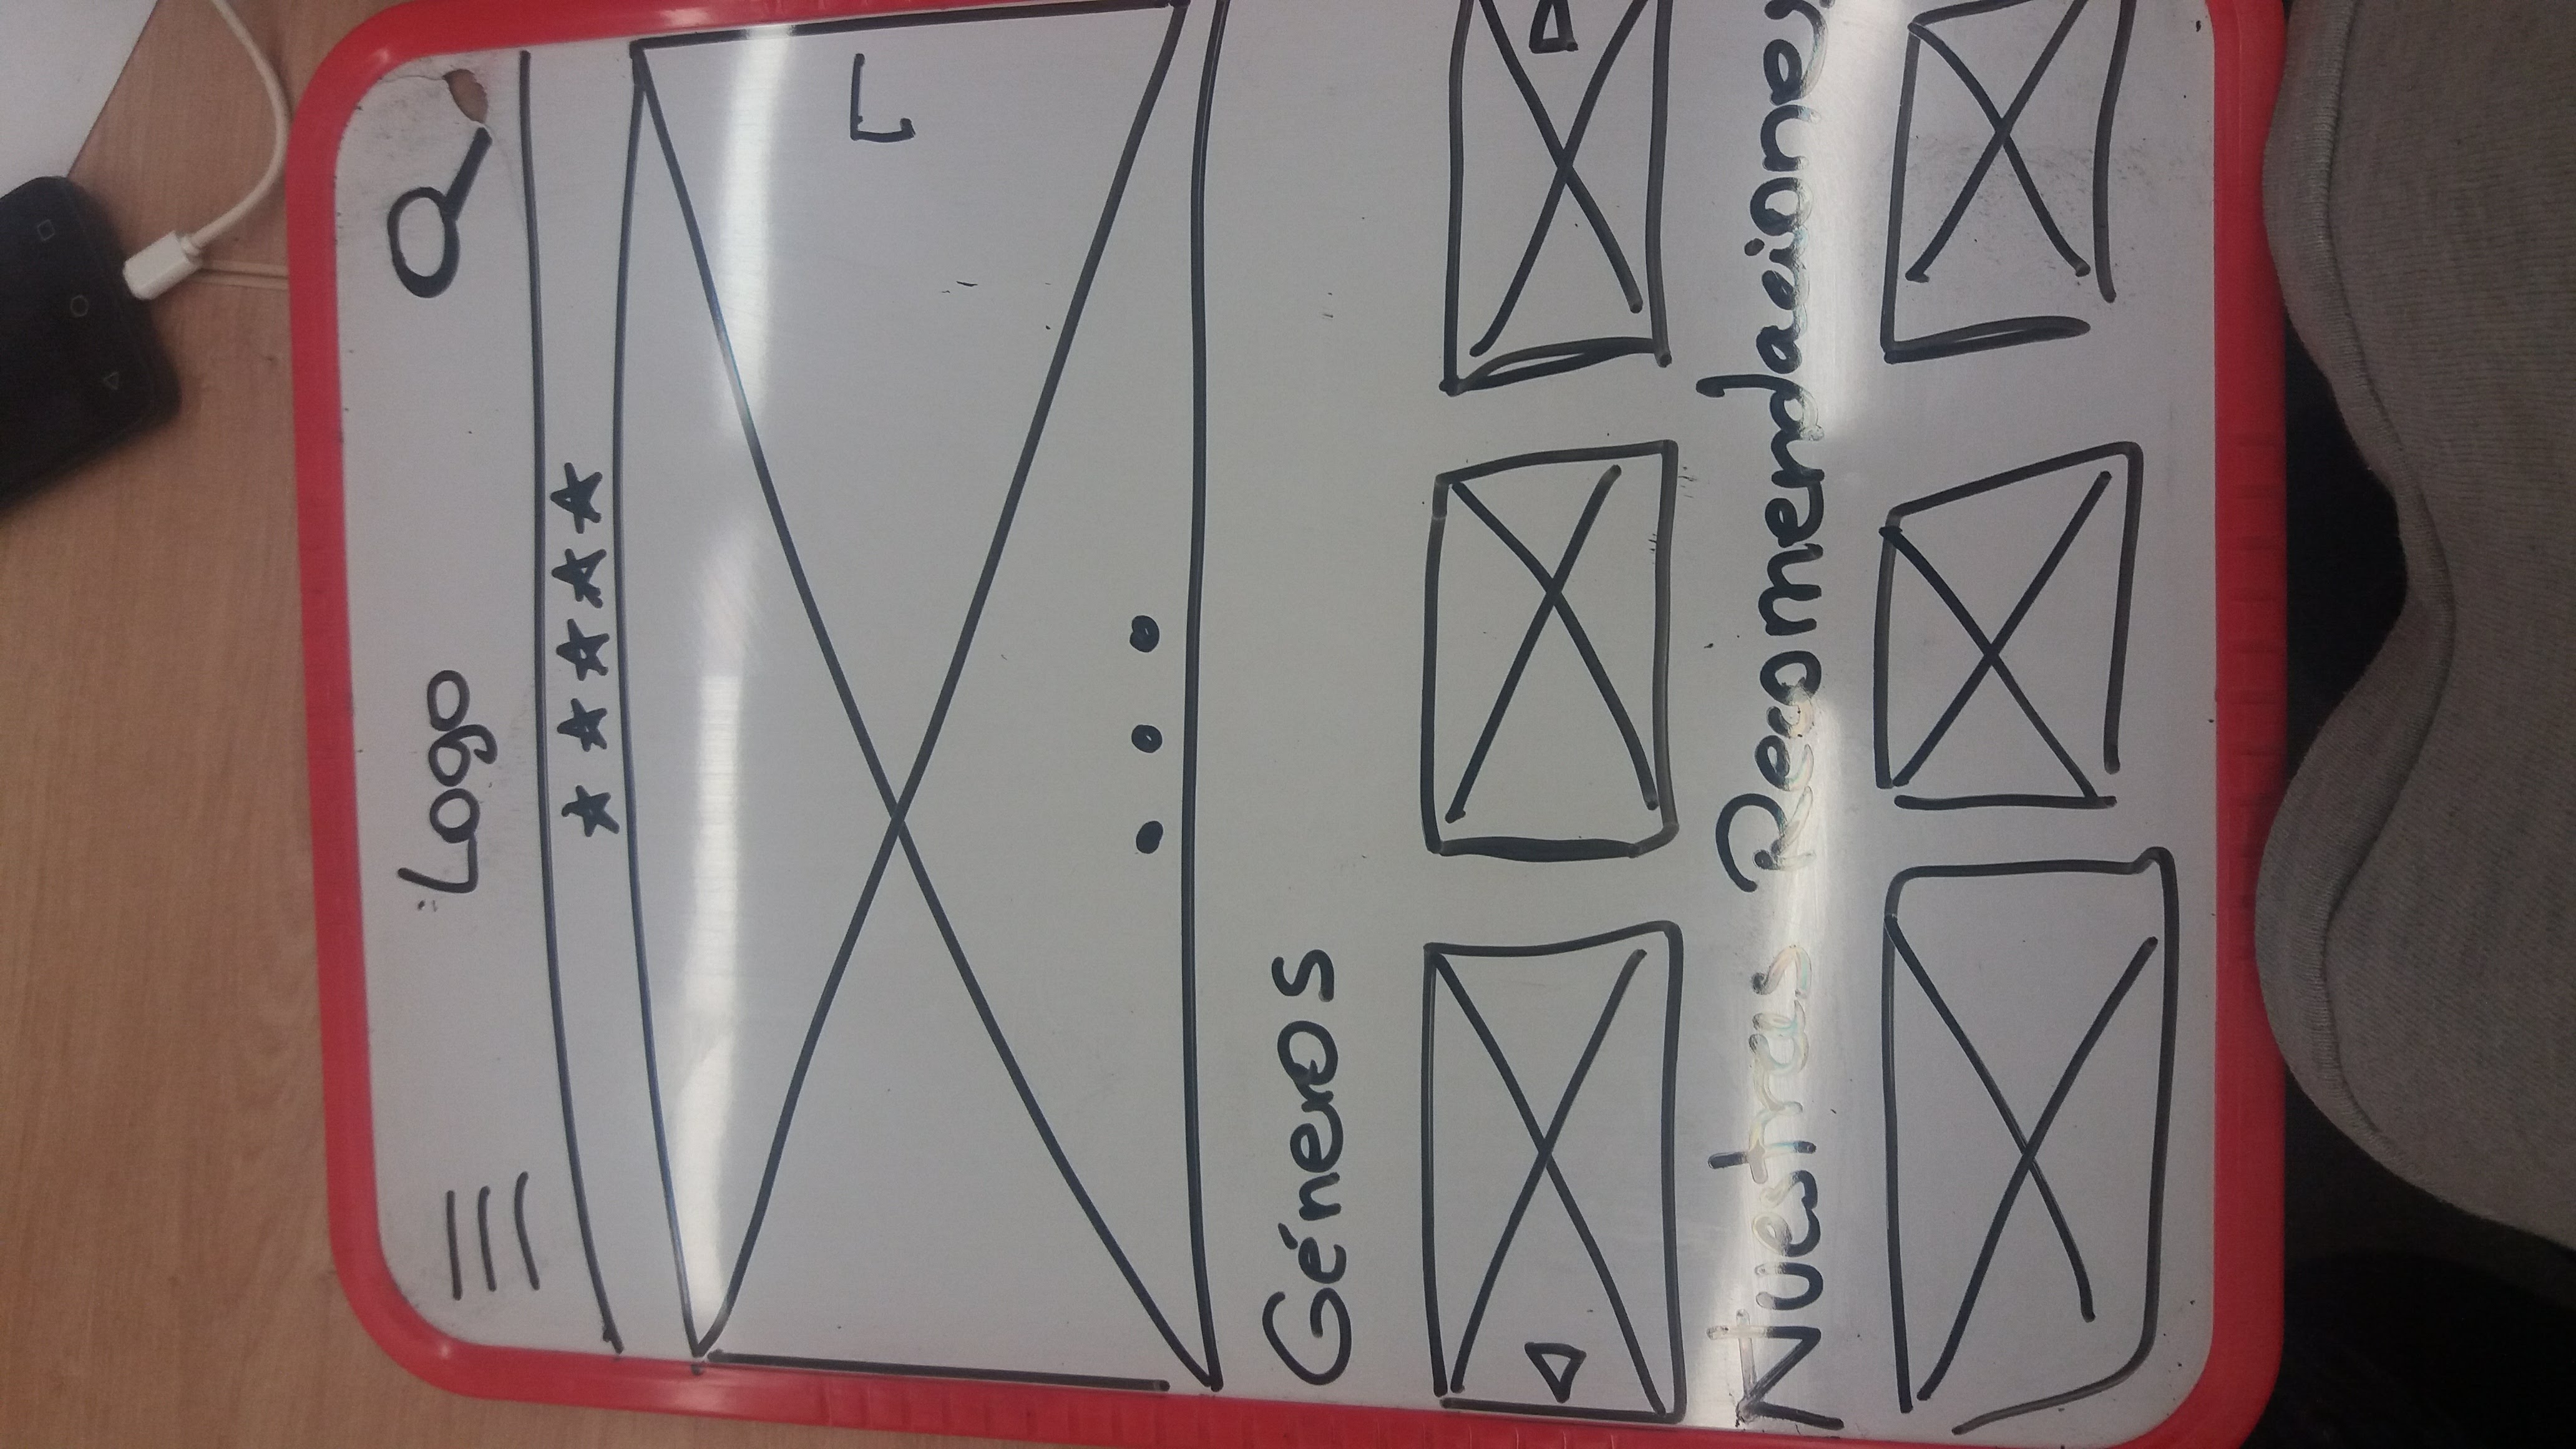 Logo
Géneros
Nuestras Recomendaciones